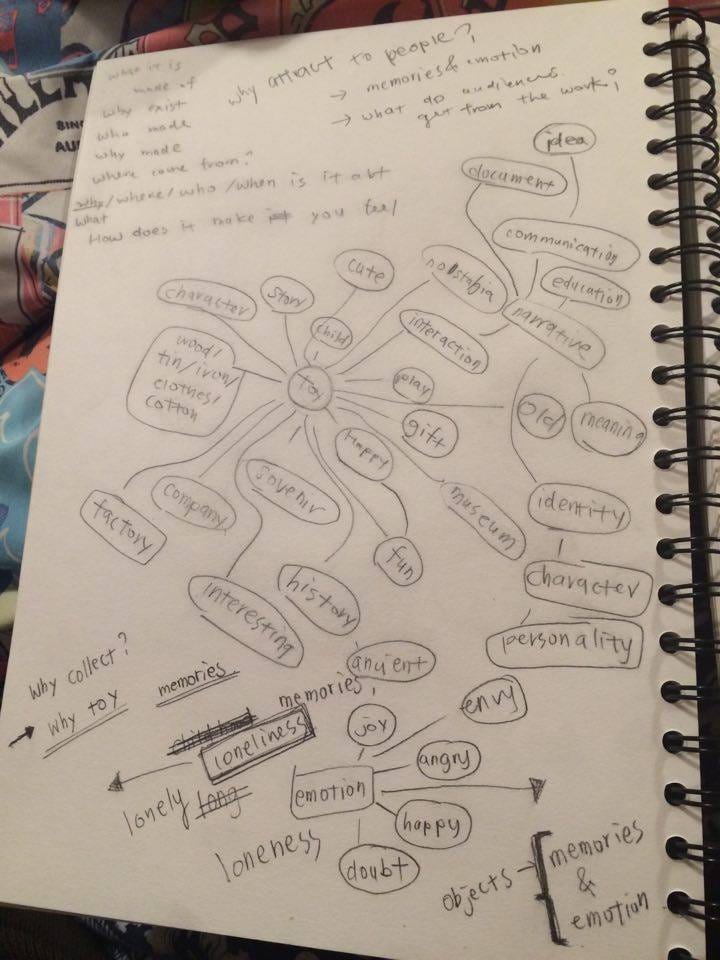 what it is
made of
why exist
who made
why made
where come from?
why/where/who/when is it abt
what
How does it make it you feel
why attract to people?
→ memories & emotion
→ what do audiences
get from the work?
idea
document
communication
education
narrative
nostabgia
interaction
cute
story
character
child
wood/
tin/iron/
clothes/
cotton
toy
play
gift
old
meaning
happy
sovenir
museum
identity
company
factory
fun
history
interesting
character
personality
ancient
why collect?
→ why toy
memories
memories
childhood
loneliness
joy
envy
angry
emotion
happy
doubt
lonely long
loneness
objects →
memories
&
emotion
SINC
AU